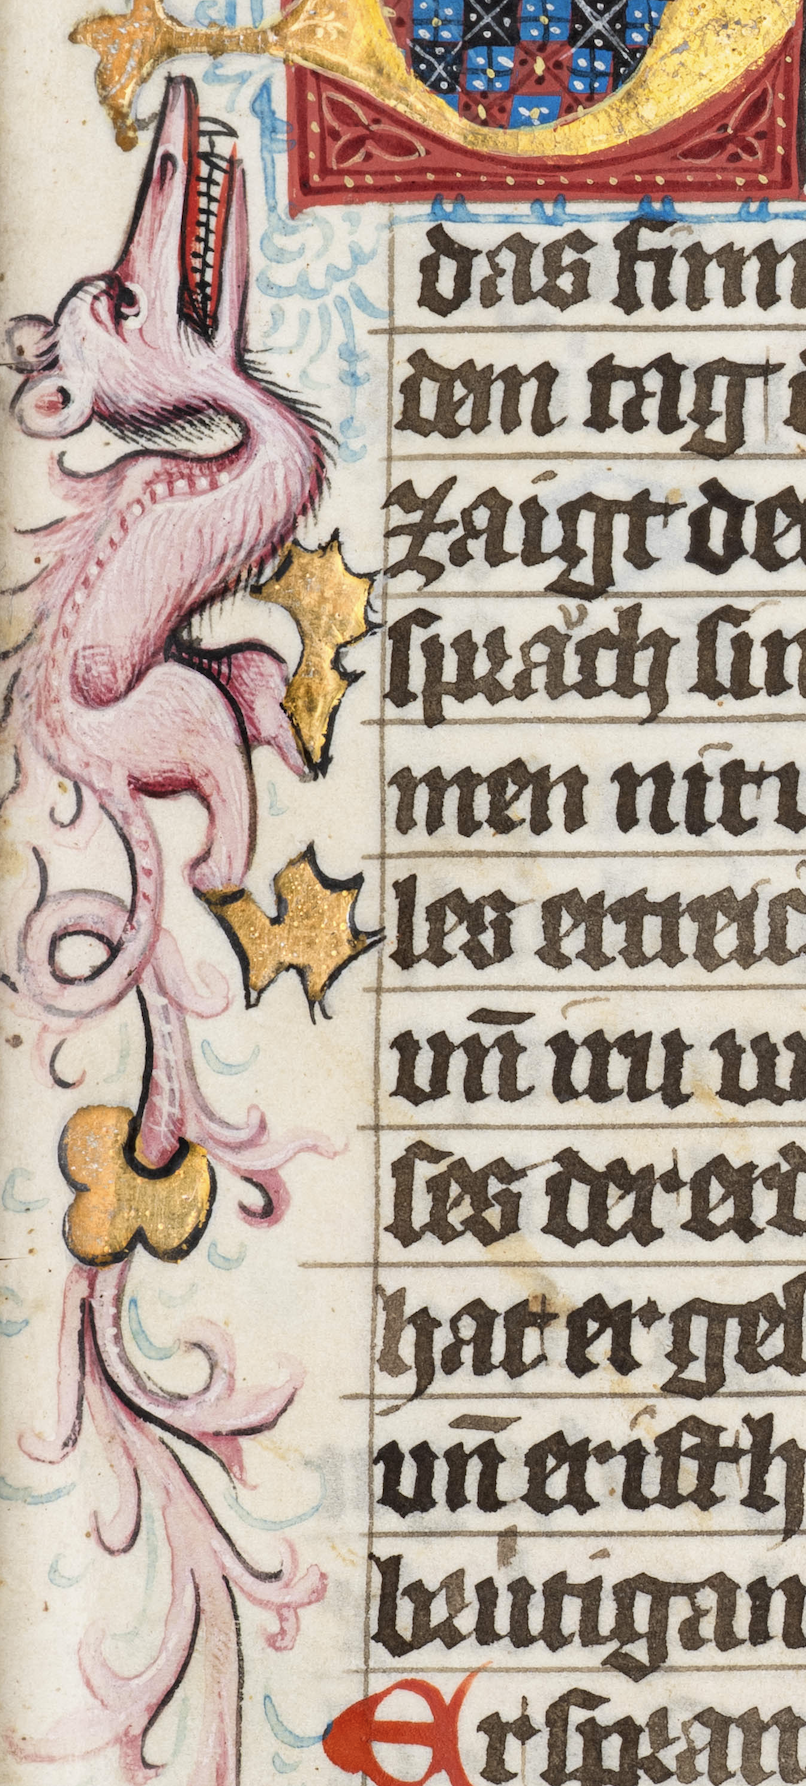 das firm
dem tag
zaigt de
sprǎch
men nit
les ertreic
vn̄ iru w
ses der erd
hat er gel
vn̄ er ist h
brútigan
Er spran